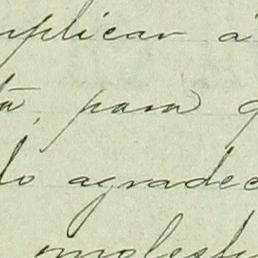 mplicar á
tá, para q
do agradec
molest